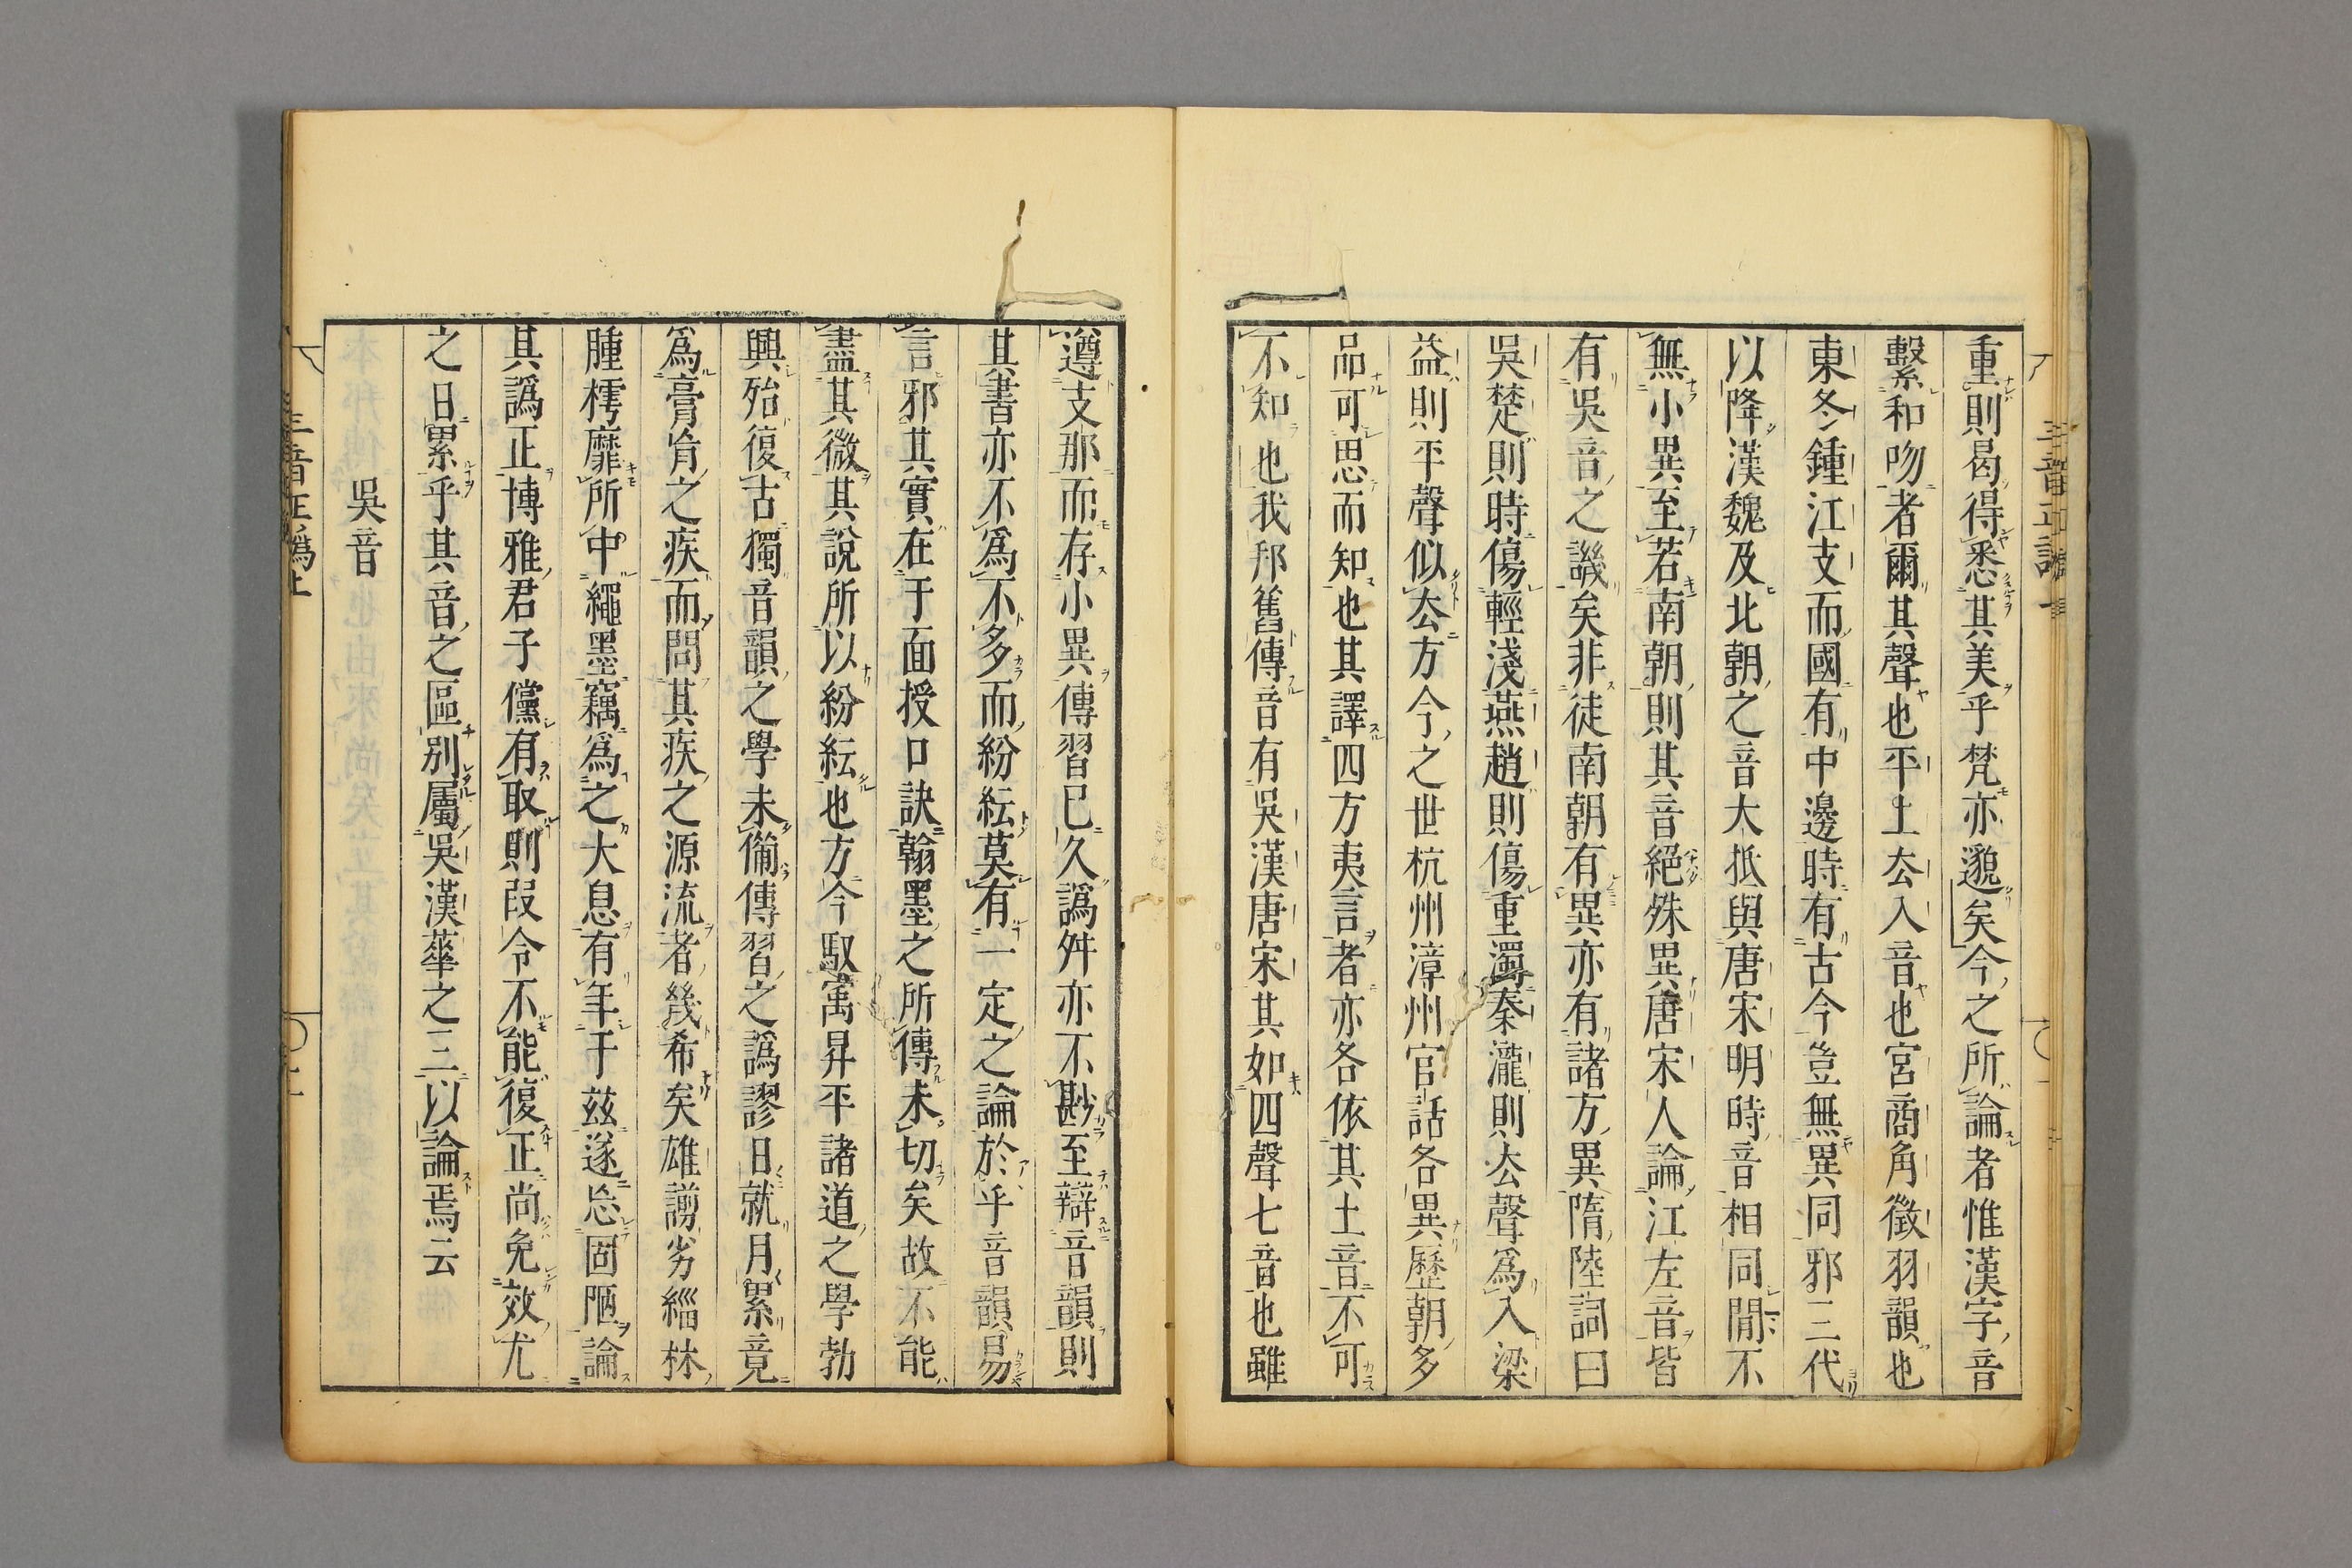 重則曷得悉其美乎梵亦邈矣今之所論者惟漢字音
繫和吻者爾其聲也平上去入音也宮商角徵羽韻也
東冬鍾江支而國有中邊時有古今豈無異同邪三代
以降漢魏及北朝之音大抵與唐宋明時音相同間不
無小異至若南朝則其音絕殊異唐宋人論江左音皆
有吳音之譏矣非徒南朝有異亦有諸方異隋陸詞曰
吳楚則時傷輕淺燕趙則傷重濁秦瀧則去聲爲入梁
益則平聲似去方今之世杭州漳州官話各異歷朝多
品可思而知也其譯四方夷言者亦各依其土音不可
不知也我邦舊傳音有吳漢唐宋其如四聲七音也雖
遵支那而存小異傳習已久譌舛亦不尠至辯音韻則
其書亦不爲不多而紛紜莫有一定之論於乎音韻易
言邪其實在于面授口訣翰墨之所傳未切矣故不能
盡其微其說所以紛紜也方今馭寓昇平諸道之學勃
興殆復古獨音韻之學未僃傳習之譌謬日就月累竟
爲膏肓之疾而問其疾之源流者幾希矣雄謭劣緇林
腫樗靡所中繩墨竊爲之大息有年于茲遂忘固陋論
其譌正博雅君子儻有取則叚令不能復正尚免效尤
之日累乎其音之區別屬吳漢華之三以論焉云
吳音
三音正譌上